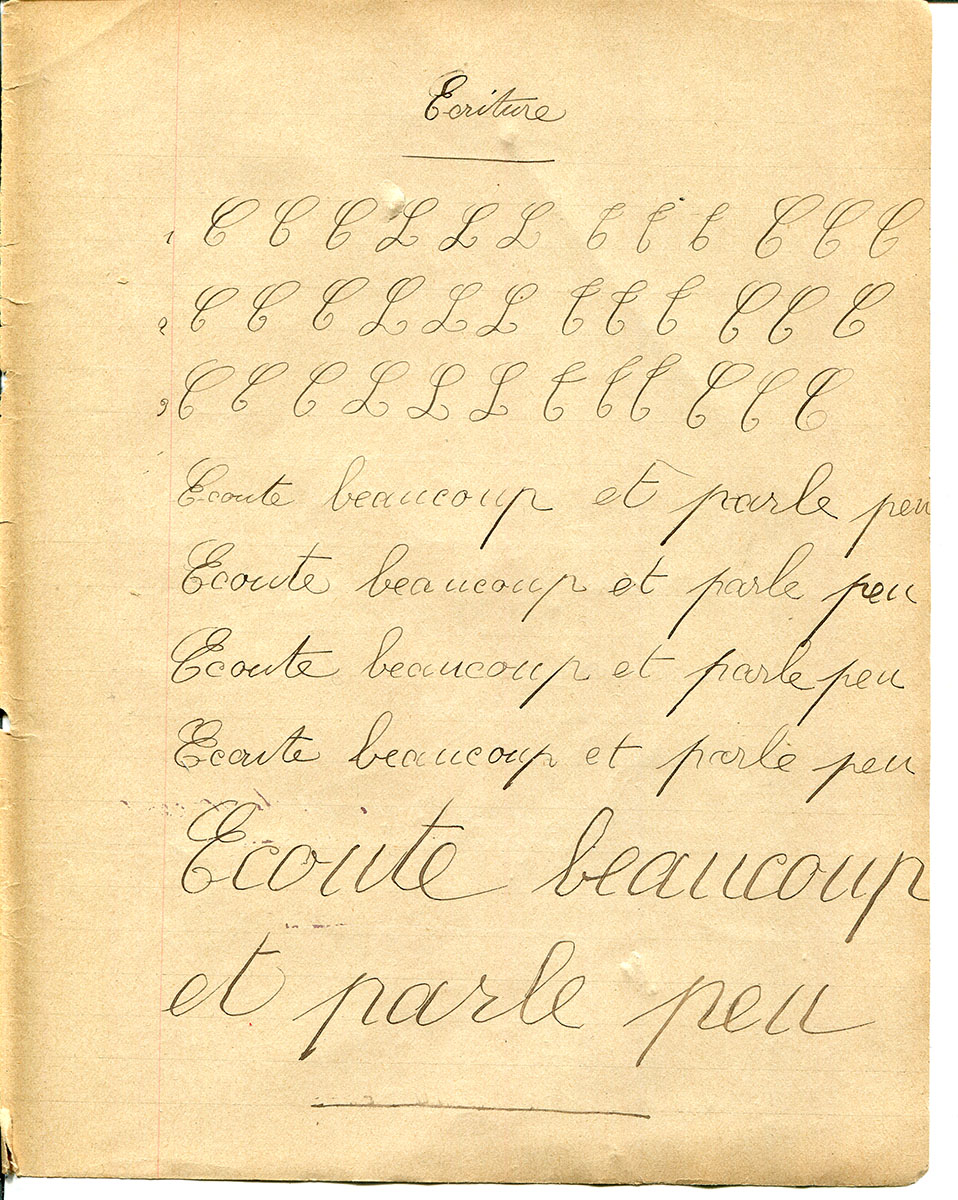 Ecriture
1 C C C L L L C C C C C C
2 C C C L L L C C C C C C
3 C C C L L L C C C C C C
Ecoute beaucoup et parle peu
Ecoute beaucoup et parle peu
Ecoute beaucoup et parle peu
Ecoute beaucoup et parle peu
Ecoute beaucoup
et parle peu